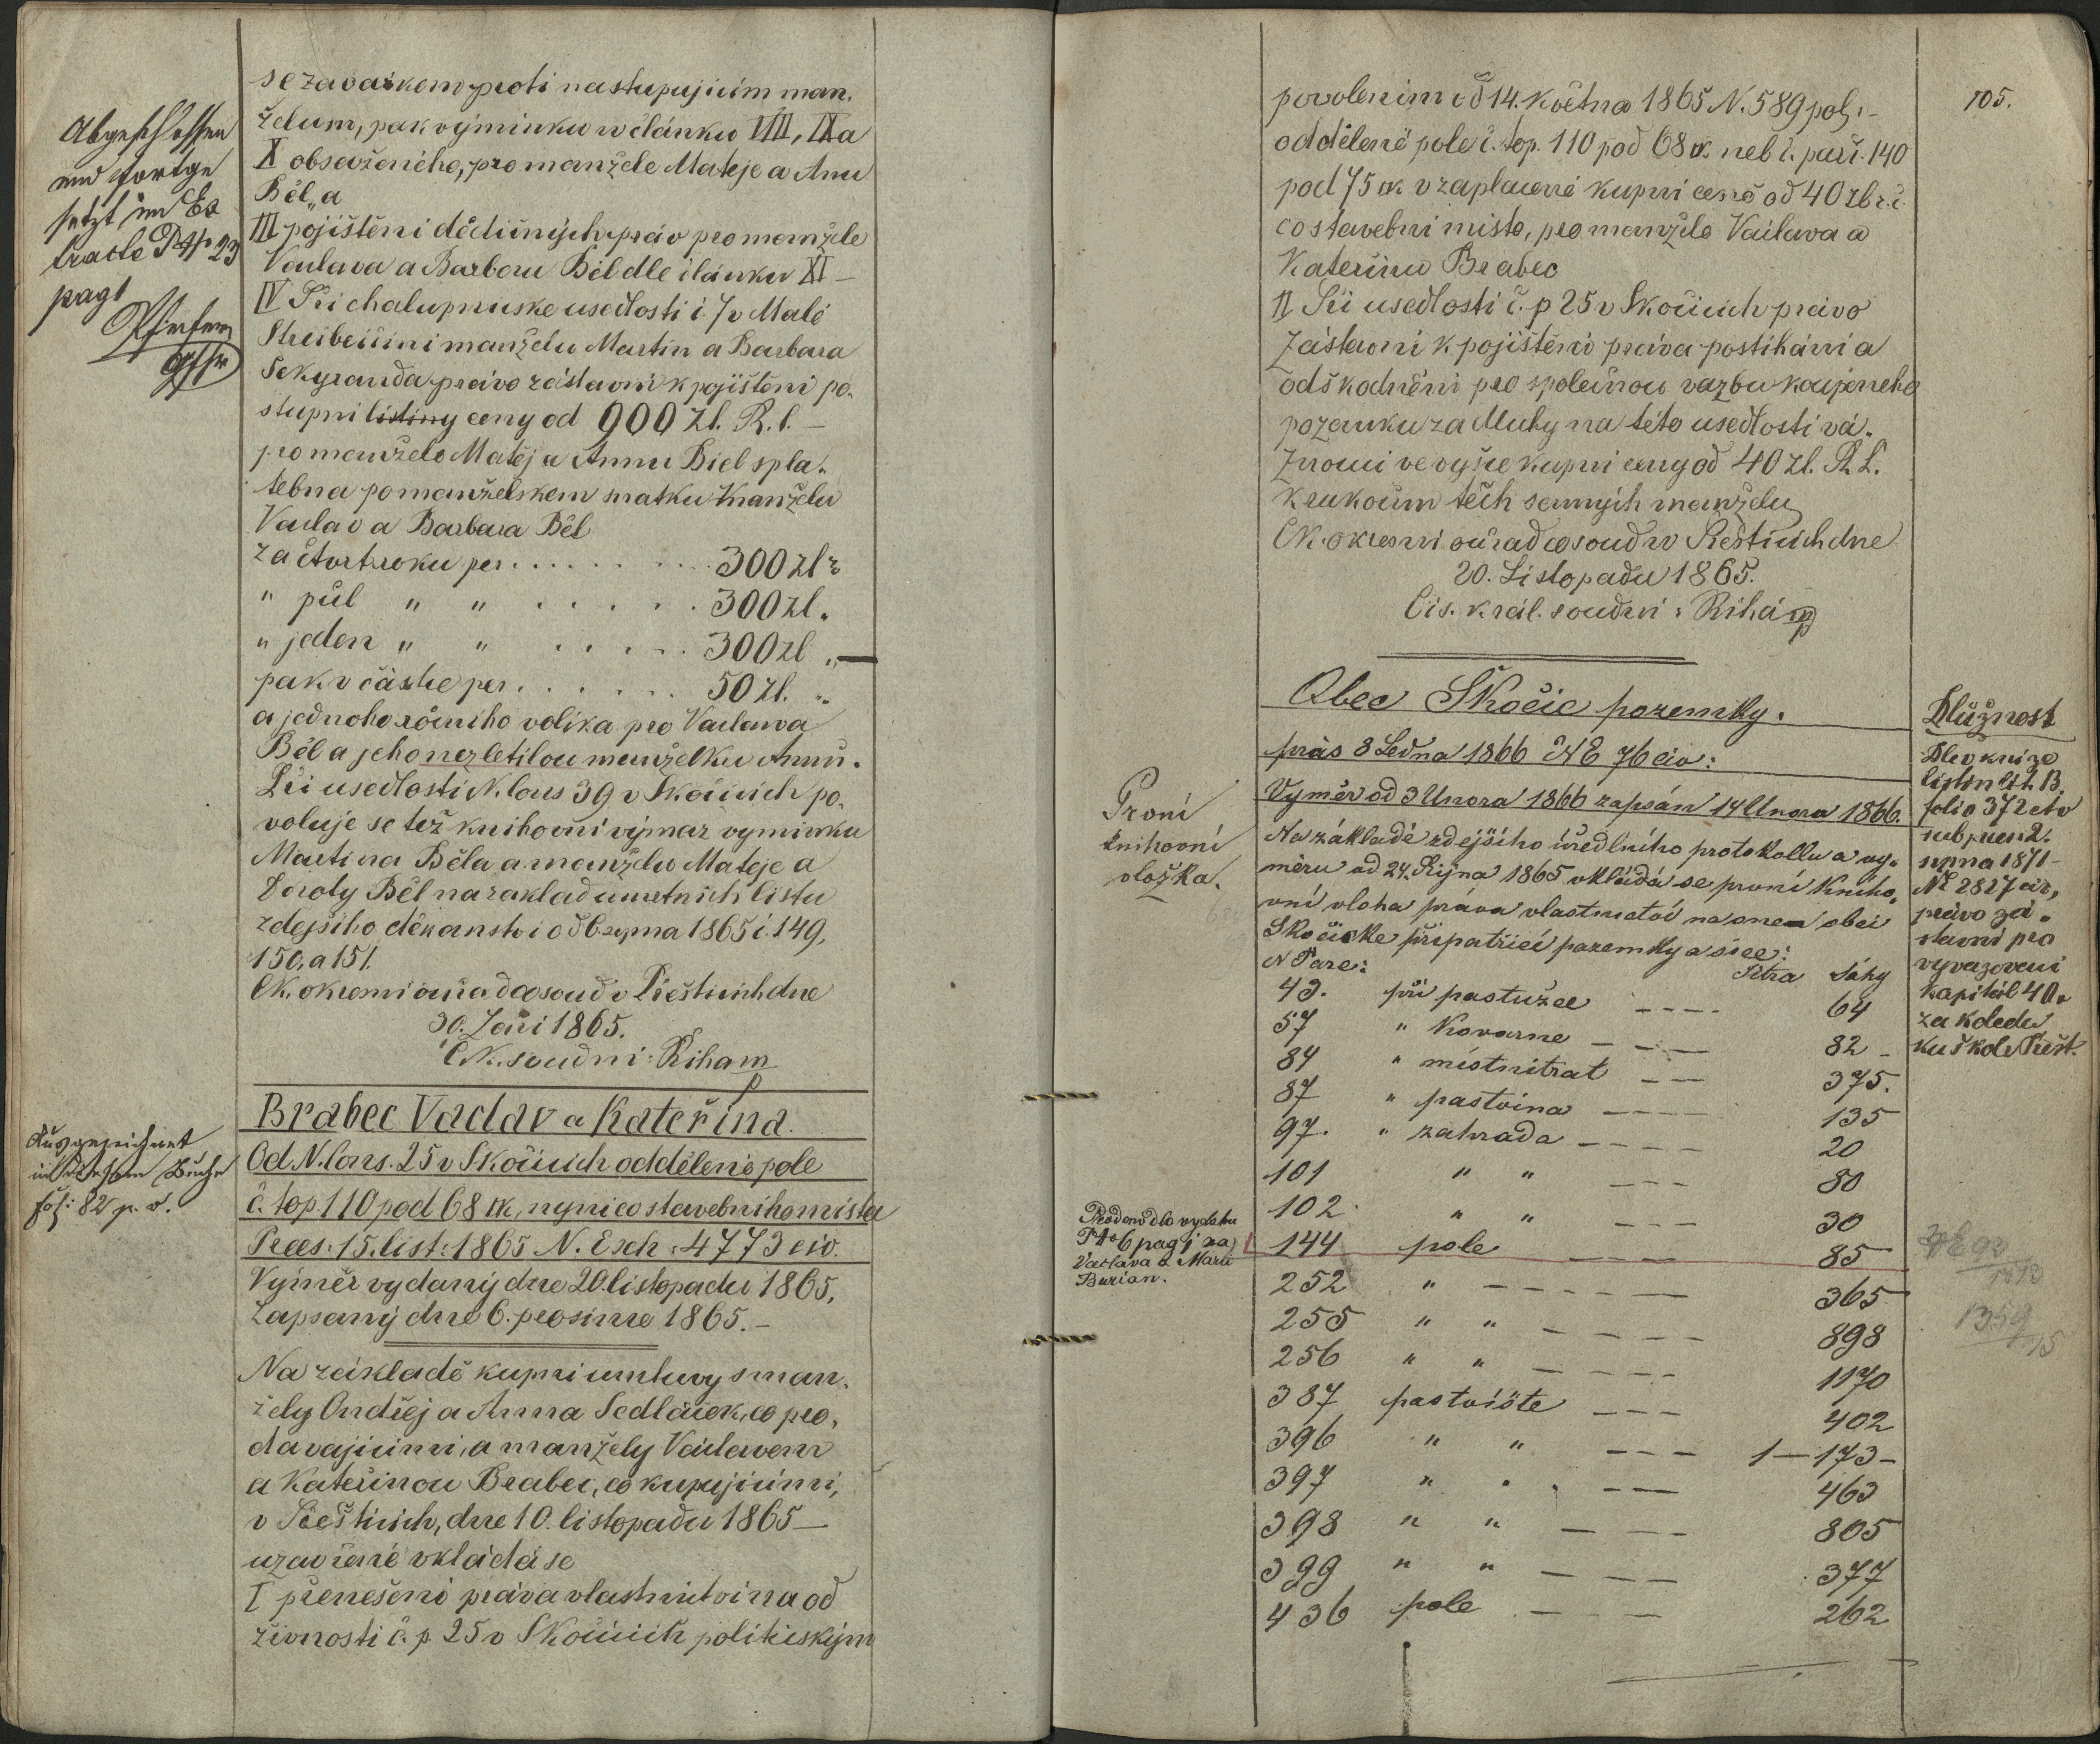 Abgeschlossen
und fortge
setzt im Ex
tracte P N 23
pag 1
se zavaskem proti nastupujicim man.
želum, pak vyminku v članku VIII, IX a
X obsaženeho, pro manžele Mateje a Anu
Běl, a
III pojištěni dědičných prav pro manžele
Vaclava a Barboru Běl dle članku XI –
IV Při chalupnuske usedlosti č. 7 v Malé
Střeibeičini manželu Martin a Barbara
Sekyranda pravo zastavni k pojištěni po.
stupni listiny ceny od 900 Zl. R. č. –
pro manžele Matěj a Annu Biel spla.
tebna po manželskem snatku manželu
Vaclav a Barbara Běl
za čtvrt roku per . . . . . . . 300 zl r
" půl " " . . . . . . 300 zl.
" jeden " " . . . . . 300 zl „
pak v částce per . . . . . . 50 zl. „
a jednoho ročniho volika pro Vaclava
Běl a jeho nezletilou manželku Annu.
Při usedlosti N. cons 39 v Skočicich po.
voluje se též knihovni vymaz vyminku
Martina Běla a manželu Mateje a
Doroty Běl na zakladu umrtnich listu
zdejšiho děkanstvi od 6 srpna 1865 č. 149,
150, a 151.
C.K. okresni ouřad co soud v Přešticich dne
30. Zaři 1865.
C.K. soudni: Řiha mp
Brabec Vaclav a Kateřina.
Ausgezeichnet
in diesem Buche
fol: 82 p. v.
Od N. cons. 25 v Skočicich oddělené pole
č. top. 110 pod 68 □K, nyni co stavebniho mista
Praes. 15. list. 1865 N. Exh. 4773 civ.
Výměr vydaný dne 20. listopadu 1865,
Zapsaný dne 6. prosince 1865. –
Na zakladě kupni umluvy s man.
žely Ondřej a Anna Sedláček, co pro,
davajicimi, a manžely Vaclavem
a Kateřinou Brabec, co kupujicimi,
v Přešticich, dne 10. listopadu 1865 –
uzavřené vkládá se
I přenešeni práva vlastnictvi na od
živnosti č. p 25 v Skočicich politickým
105.
povolenim od 14. května 1865 N. 589 pol. –
oddělené pole č. top. 110 pod 68 □K neb č. parc. 140
pod 75 □K v zaplacené kupni ceně od 40 zl. r. č.
co stavebni misto, pro manžele Vaclava a
Kateřinu Brabec
II Při usedlosti č. p 25 v Skočicich právo
Zástavni k pojištěni práva postiháni a
odškodněni pro společnou vazbu koupeneho
pozemku za dluhy na této usedlosti vá.
znouci ve vyšce kupni ceny od 40 zl. R. č.
k rukoum těch samých manželu
C.K. okresni ouřad co soud v Přešticich dne
20. Listopadu 1865.
Cis. král. soudni: Řiha mp
Obec Skočic pozemky.
prás 8 Ledna 1866 NE 76 civ:
Výměr od 3 Unora 1866 zapsán 14 Unora 1866.
První
knihovní
vložka.
Na základě zdejšího úředlního protokollu a vy.
měru od 24. Října 1865 vkládá se první kniho.
vní vloha práva vlastnictví na onen obci
Skočické připatřicí pozemky a sice:
N Parc: Jitra Sáhy
43. při pastušce – – – – 64
57 " Kovarne – – – 82 –
84 " místnitrat – – 375.
87 " pastvina – – – – 135
97. " zahrada – – – – 20
101 " " – – – 80
102. " " – – – 30
144 pole – – – 85
252 " – – – – – 365
255 " " – – – – – 898
256 " " – – – – – 1170
387 pastviště – – – 402
396 " " – – – 1 — 173 –
397 " " – – – 463
398 " " – – – 805
399 " " – – – – 377
436 pole – – – 262
Prodano dle vydatu
P N 6 pag 1 na
Václava a Marii
Burian.
Dlužnost
Dle knize
listin lit. B.
folio 372 et v
sub praes 2.
srpna 1871 –
No 2827 civ,
právo zá.
stavní pro
vyvazovací
kapitál 40.
za koledu
ku škole Přešt.
1359